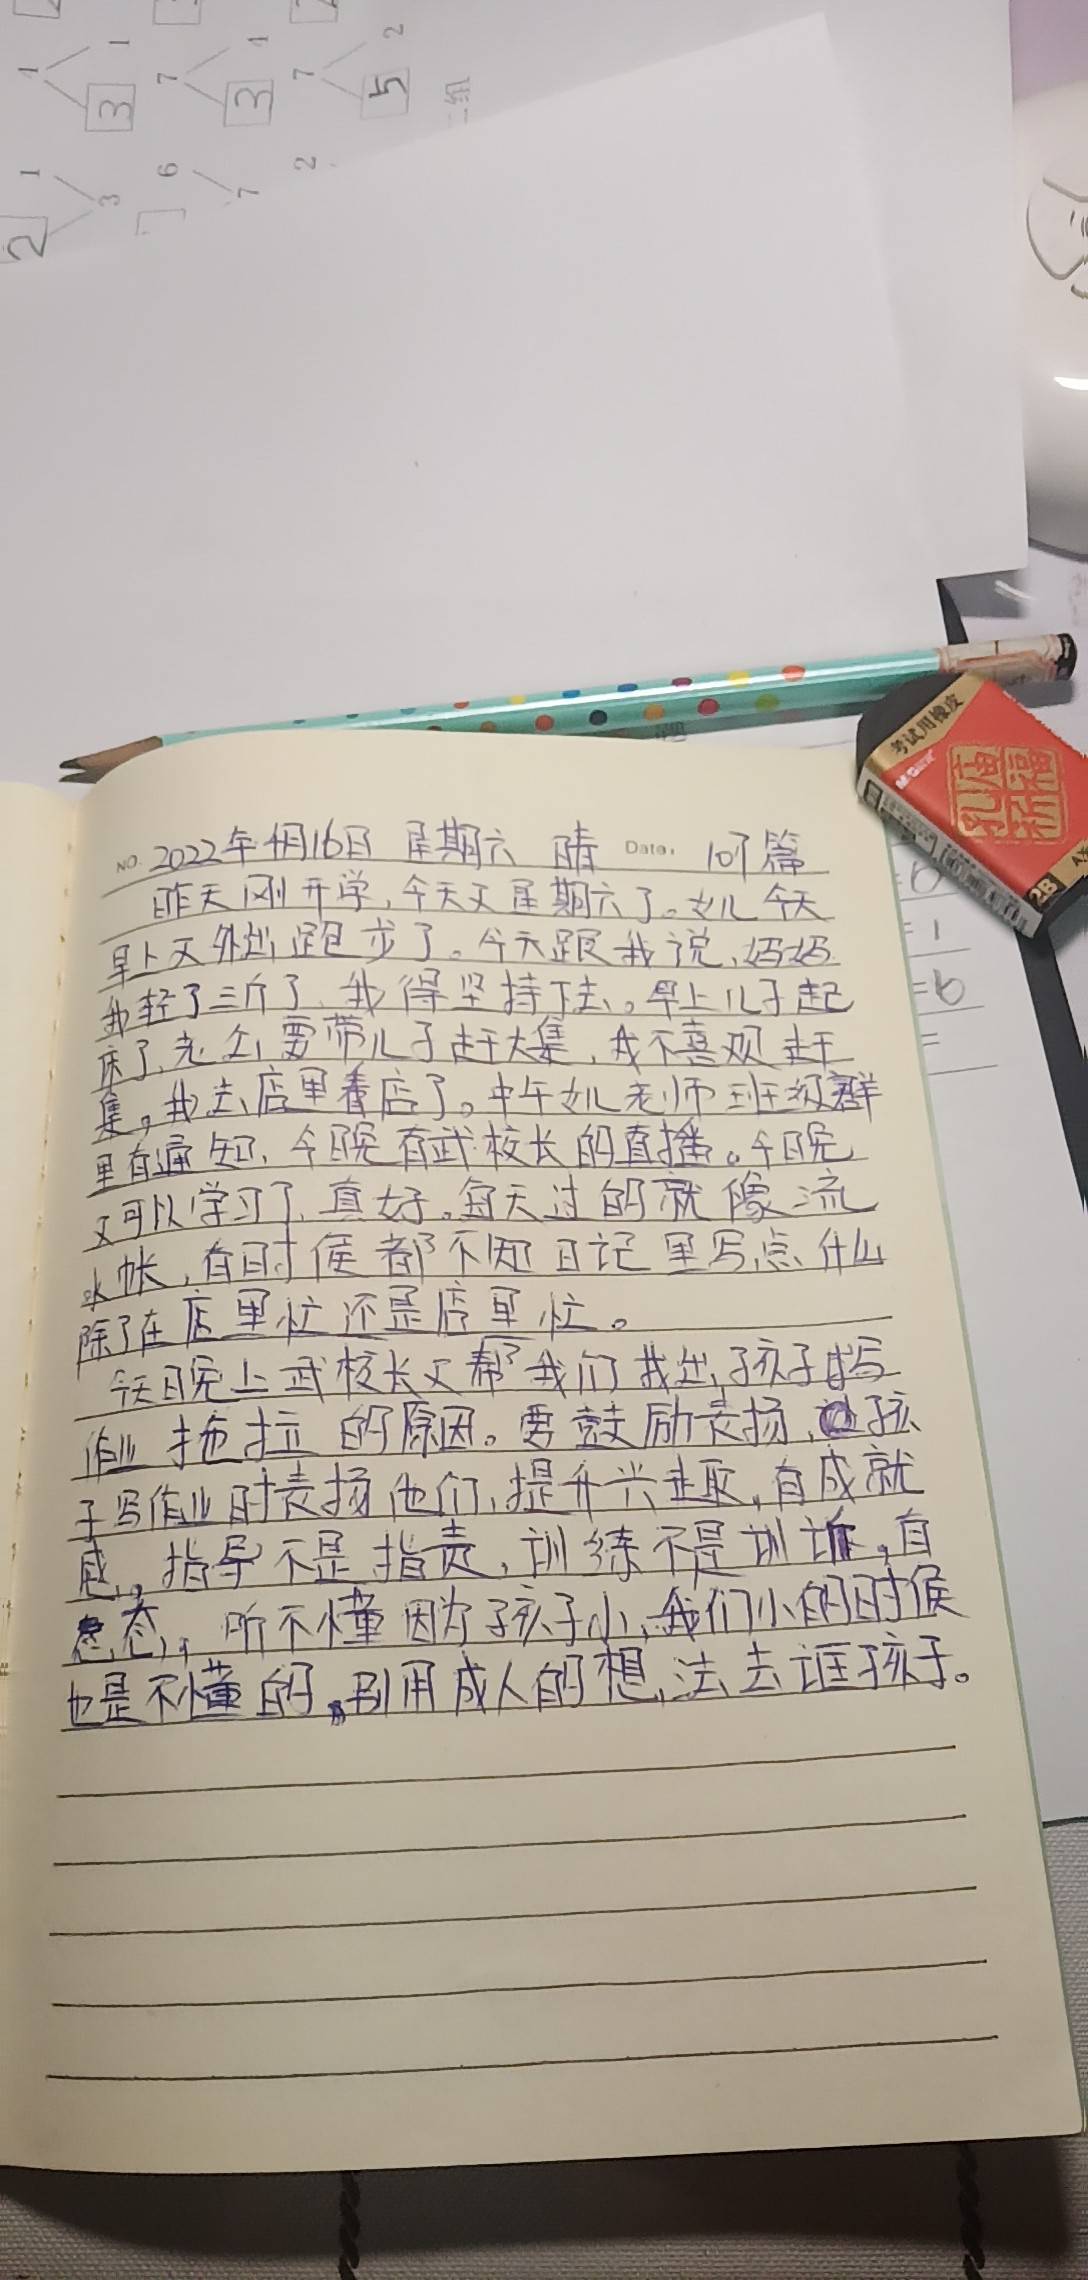 1
4
1
3
7
4
3
7
2
5
二组
2
1
3
6
7
2
考试用橡皮
M&G
孔庙祈福
2B
NO. 2022年4月16日 星期六 晴 Date. 107篇
昨天刚开学,今天又星期六了。女儿今天
早上又外出跑步了。今天跟我说,妈妈
我轻了三斤了,我得坚持下去。早上儿子起
床了,老公要带儿子赶大集,我不喜欢赶
集。我去店里看店了。中午女儿老师班级群
里有通知,今晚有武校长的直播。今晚
又可以学习了,真好。每天过的就像流
水帐,有时候都不知日记里写点什么
除了在店里忙还是店里忙。
今天晚上武校长又帮我们找出了孩子写
作业拖拉的原因。要鼓励表扬,孩
子写作业时表扬他们,提升兴趣,有成就
感。指导不是指责,训练不是训斥,有
态。听不懂因为孩子小,我们小的时候
也是不懂的,别用成人的想法去诓孩子。
=6
=1
=6
=